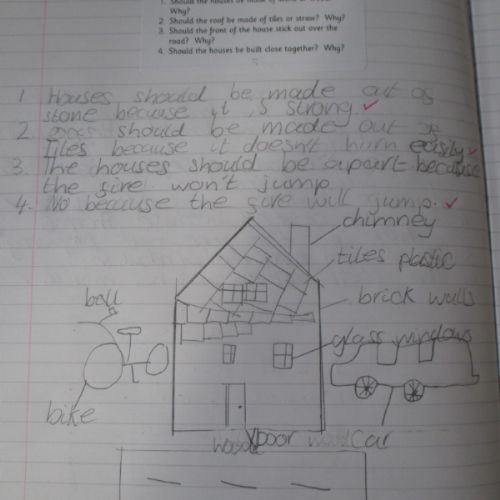 Why?
2. Should the roof be made of tiles or straw? Why?
3. Should the front of the house stick out over the
road? Why?
4. Should the houses be built close together? Why?
1 Houses should be made out of
stone because it is strong.
2 should be made out of
Tiles because it doesn't burn easily
3. The houses should be apart because
the fire won't jump
4. No because the fire will jump.
chimney
tiles plastic
brick walls
bell
glass windows
bike
Door wood car